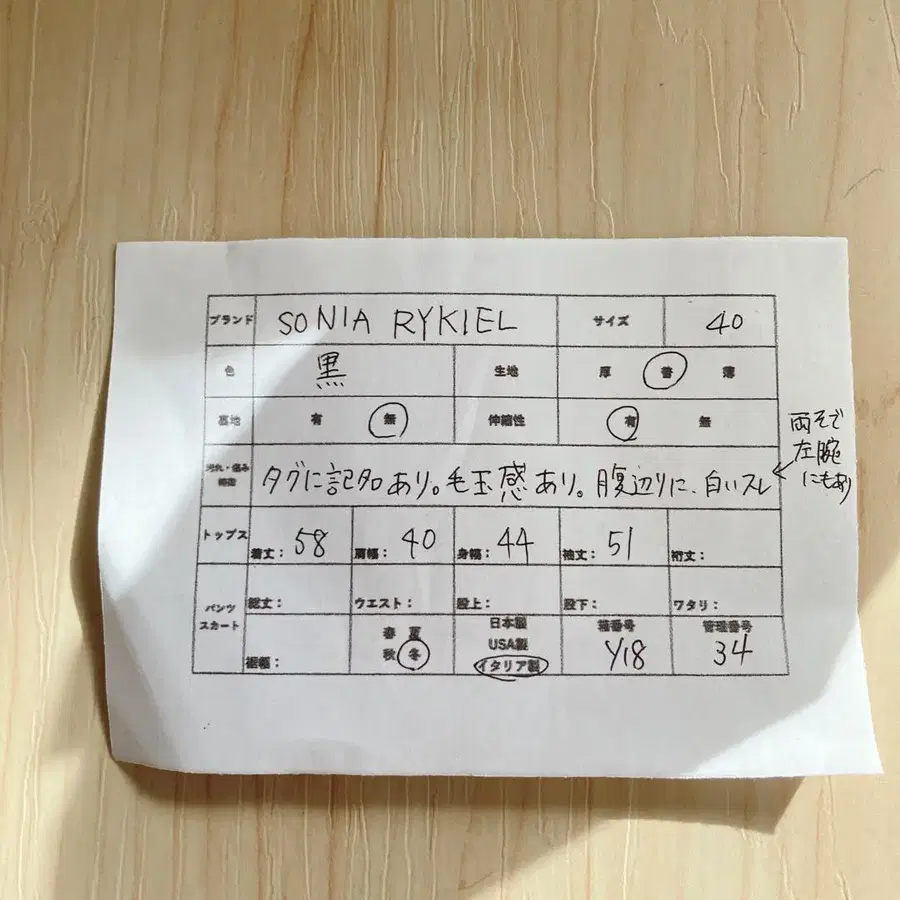 ブランド SONIA RYKIEL サイズ 40
色 黒 生地 厚 普 薄
裏地 有 無 伸縮性 有 無
両そで
左腕
にもあり
汚れ・傷み
補強
タグに記名あり。毛玉感あり。腹辺りに、白いスレ
トップス 着丈: 58 肩幅: 40 身幅: 44 袖丈: 51 裄丈:
パンツ
スカート
総丈: ウエスト: 股上: 股下: ワタリ:
裾幅:
春 夏
秋 冬
日本製
USA製
イタリア製
箱番号
Y18
管理番号
34